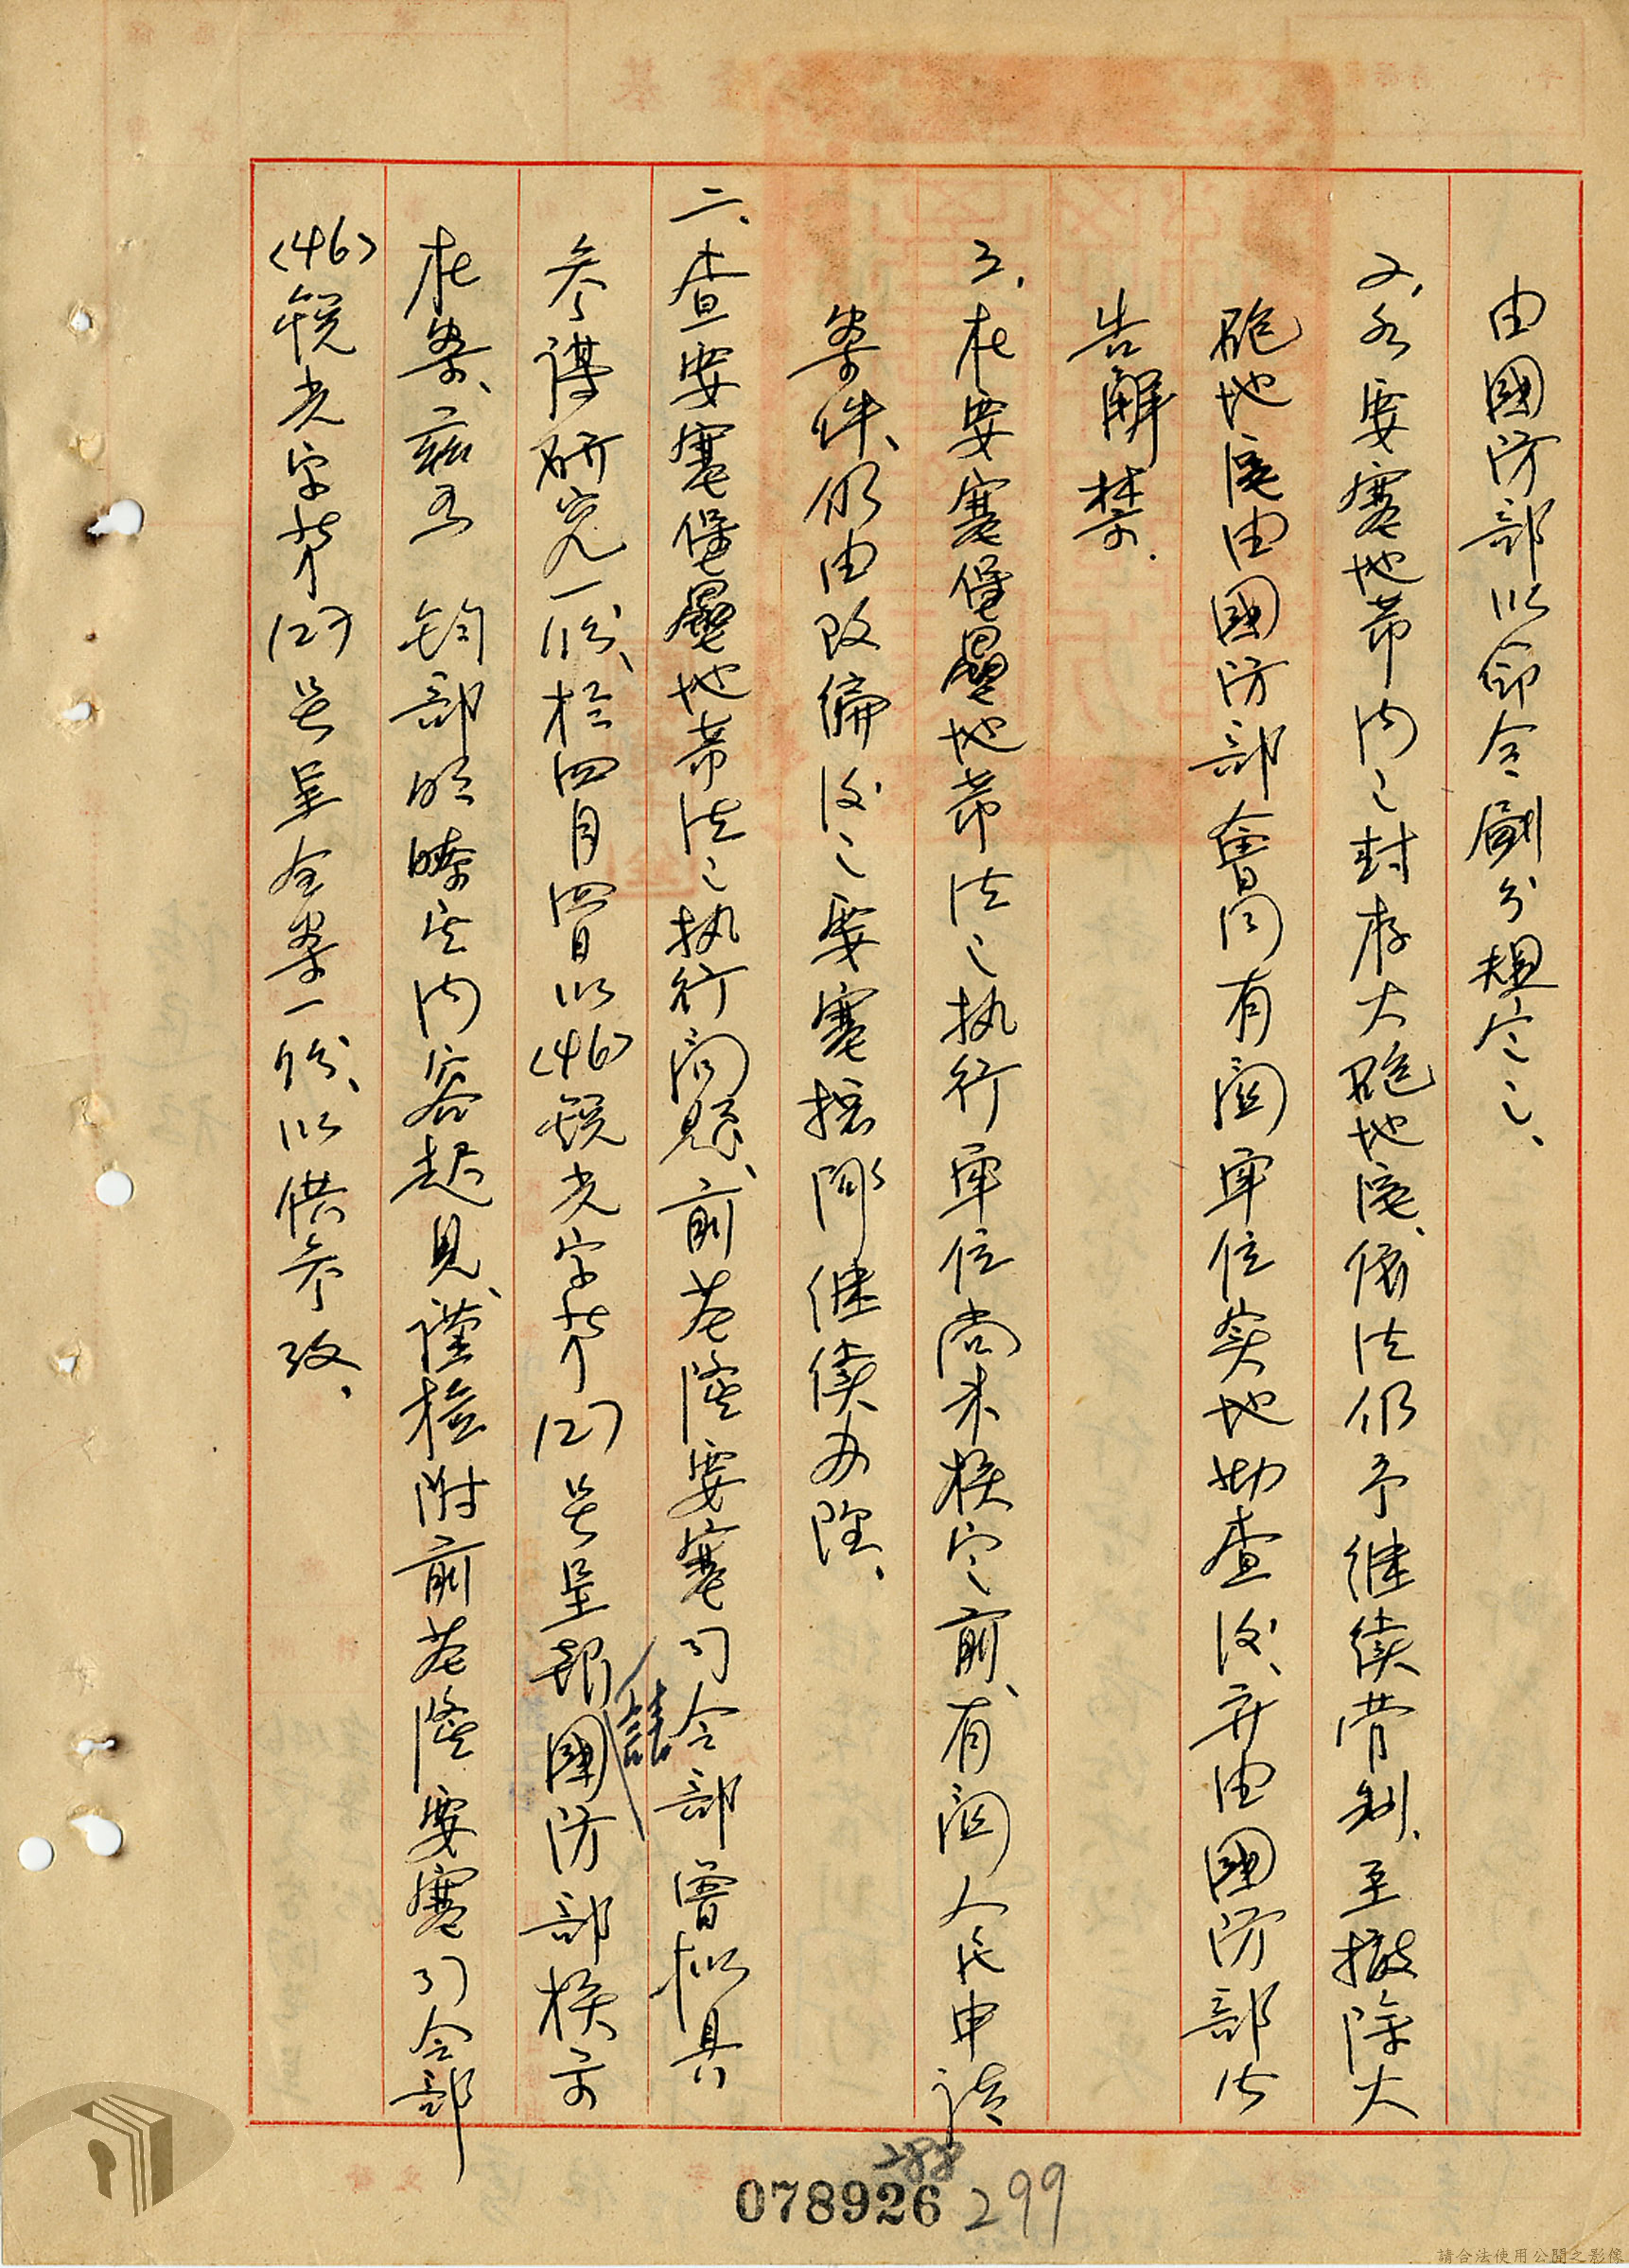 由國防部以命令劃分規定之、
2、各要塞地帶內之封存大砲地區、依法仍予继续管制、至撤除大
砲地區由國防部會同有関单位实地勘查後、并由國防部公
告解禁.
3、在要塞堡壘地帶法之执行单位尚未核定前、有関人民申請
案件、仍由改编後之要塞
继续办理、
二、查要塞堡壘地帶法之执行问题、前基隆要塞司令部曾拟具
参谋研究一份、於四月四日以(46)锐光字第127号呈報請國防部核示
在案、兹为 鈞部明瞭其内容起見、謹檢附前基隆要塞司令部
(46)锐光字第127号呈全案一份、以供参攷、
078926
288
299
請合法使用公開之影像